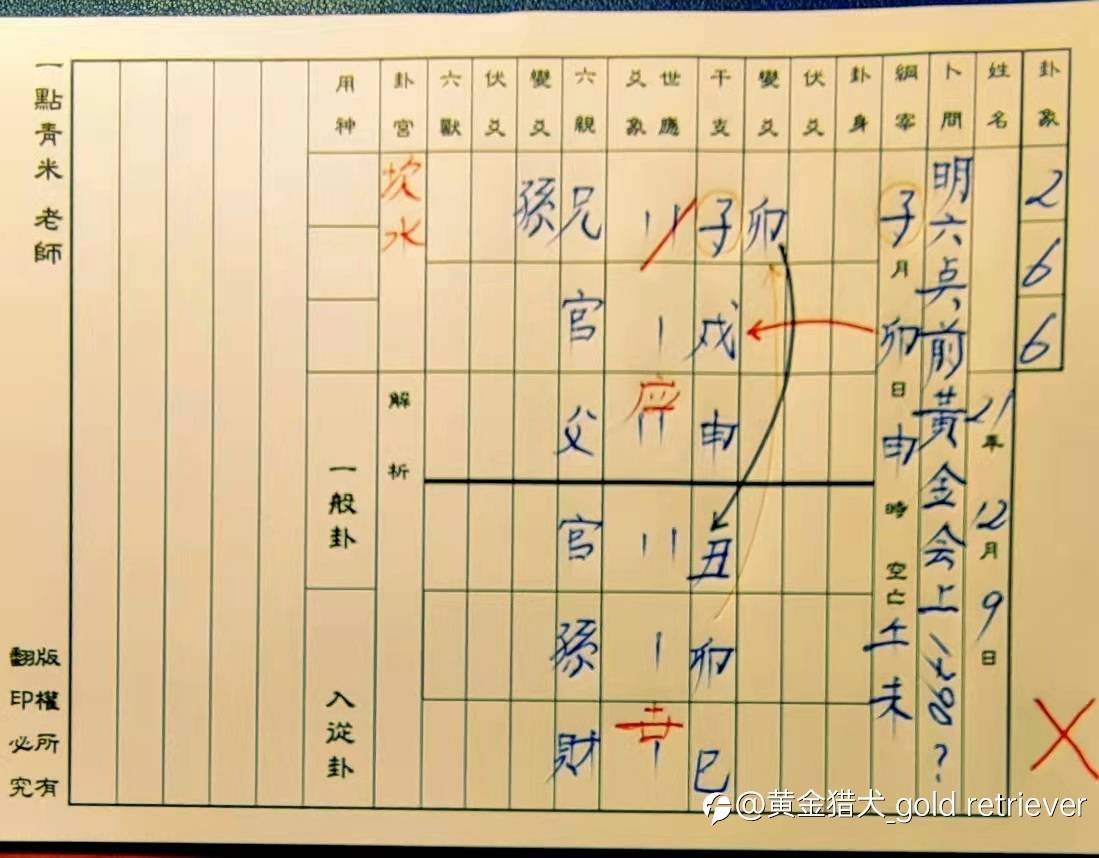 卦象 2 6 6
姓名 21年 12月 9日
卜問 明六点前黃金会上 ?
綱宰 子月 卯日 申時 空亡 午未
卦身
伏爻
變爻 卯
干支 子 戌 申 丑 卯 巳
世應
爻象 应 世
六親 兄 官 父 官 孫 財
變爻 孫
伏爻
六獸
卦宮 坎水
解析
用神
一般卦
入從卦
一點青米 老師
版權所有
翻印必究
@黄金猎犬_gold retriever